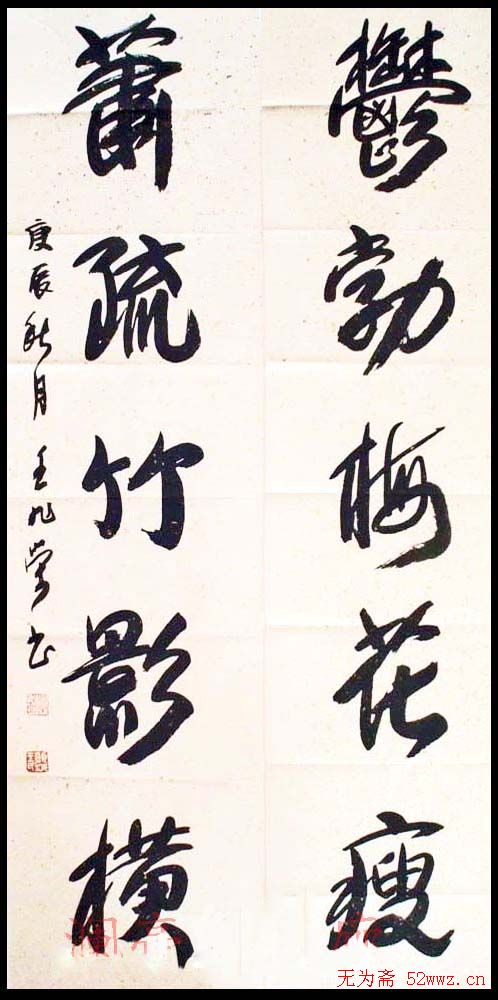 鬱勃梅花瘦
蕭疏竹影橫
庚辰秋月 王旭榮書
无为斋 52wwz.cn